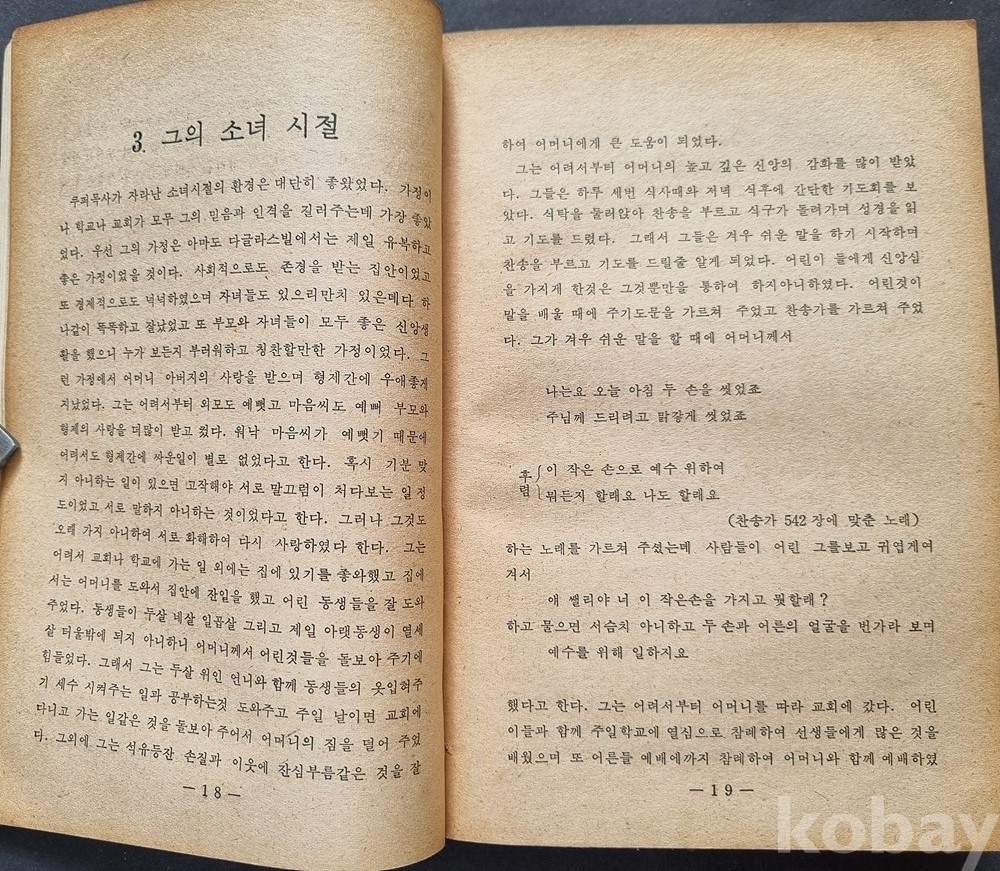 3. 그의 소녀 시절
루퍼목사가 자라난 소녀시절의 환경은 대단히 좋왔었다. 가정이
나 학교나 교회가 모무 그의 믿음과 인격을 질러주는데 가장 좋았
었다. 우선 그의 가정은 아마도 다글라스빌에서는 제일 유복하고
좋은 가정이었을 것이다. 사회적으로도 존경을 받는 집안이었고
또 경제적으로도 넉넉하였으며 자녀들도 있으리만치 있은데다 하
나같이 똑똑하고 잘났었고 또 부모와 자녀들이 모두 좋은 신앙생
활을 했으니 누가 보든지 부러워하고 칭찬할만한 가정이었다. 그
런 가정에서 어머니 아버지의 사랑을 받으며 형제간에 우애좋게
지났었다. 그는 어려서부터 외모도 예뻣고 마음씨도 예뻐 부모와
형제의 사랑을 더많이 받고 컸다. 워낙 마음씨가 예뻣기 때문에
어려서도 형제간에 싸운일이 별로 없었다고 한다. 혹시 기분 맞
지 아니하는 일이 있으면 고작해야 서로 말끄럼이 처다보는 일정
도이었고 서로 말하지 아니하는 것이었다고 한다. 그러나 그것도
오래 가지 아니하여 서로 화해하여 다시 사랑하였다 한다. 그는
어려서 교회나 학교에 가는 일 외에는 집에 있기를 좋와했고 집에
서는 어머니를 도와서 집안에 잔일을 했고 어린 동생들을 잘 도와
주었다. 동생들이 두살 네살 일곱살 그리고 제일 아랫동생이 열세
살 터울밖에 되지 아니하니 어머니께서 어린것들을 돌보아 주기에
힘들었다. 그래서 그는 두살 위인 언니와 함께 동생들의 옷입혀주
기 세수 시켜주는 일과 공부하는것 도와주고 주일 날이면 교회에
다니고 가는 일같은 것을 돌보아 주어서 어머니의 짐을 덜어 주었
다. 그외에 그는 석유등잔 손질과 이웃에 잔심부름같은 것을 잘
—18—
하여 어머니에게 큰 도움이 되었다.
그는 어려서부터 어머니의 높고 깊은 신앙의 감화를 많이 받았
다. 그들은 하루 세번 식사때와 저녁 식후에 간단한 기도회를 보
았다. 식탁을 둘러앉아 찬송을 부르고 식구가 돌려가며 성경을 읽
고 기도를 드렸다. 그래서 그들은 겨우 쉬운 말을 하기 시작하며
찬송을 부르고 기도를 드릴줄 알게 되었다. 어린이 들에게 신앙심
을 가지게 한것은 그것뿐만을 통하여 하지아니하였다. 어린것이
말을 배울 때에 주기도문을 가르쳐 주었고 찬송가를 가르쳐 주었
다. 그가 겨우 쉬운 말을 할 때에 어머니께서
나는요 오늘 아침 두 손을 씻었죠
주님께 드리려고 맑장게 씻었죠
후렴 이 작은 손으로 예수 위하여
뭐든지 할래요 나도 할래요
(찬송가 542 장에 맞춘 노래)
하는 노래를 가르쳐 주셨는데 사람들이 어린 그를보고 귀엽게여
겨서
얘 쌜리야 너 이 작은손을 가지고 뭣할래?
하고 물으면 서슴치 아니하고 두손과 어른의 얼굴을 번가라 보며
예수를 위해 일하지요
했다고 한다. 그는 어려서부터 어머니를 따라 교회에 갔다. 어린
이들과 함께 주일학교에 열심으로 참례하여 선생들에게 많은 것을
배웠으며 또 어른들 예배에까지 참례하여 어머니와 함께 예배하였
—19—
kobay